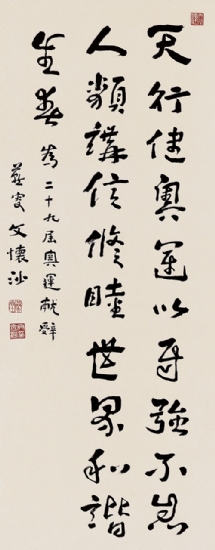 天行健奧運以自強不息
人類講信修睦世界和諧
為二十九屆奧運献辭
燕叟文懷沙